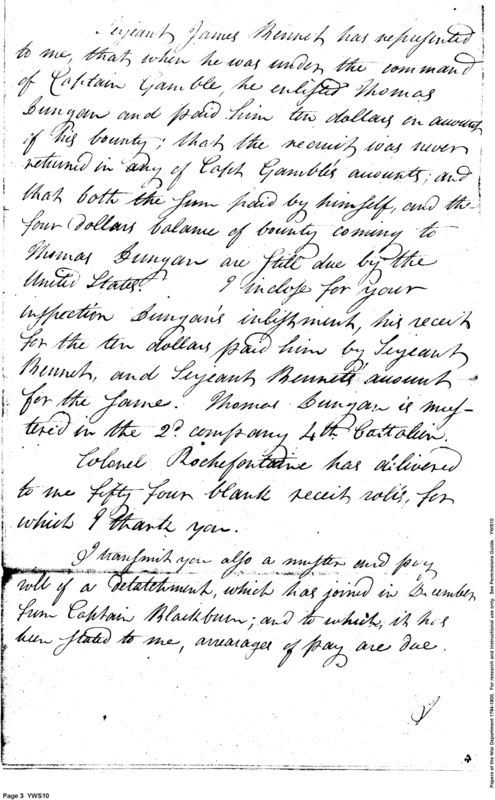 Serjeant James Bennet has represented
to me, that when he was under the command
of Captain Gamble, he enlisted Thomas
Dungan and paid him ten dollars on account
of his bounty; that the recruit was never
returned in any of Capt Gamble's acounts; and
that both the sum paid by himself, and the
four dollars balance of bounty coming to
Thomas Dungan are still due by the
United States. I inclose for your
inspection Dungan's inlistment, his receit
for the ten dollars paid him by Serjeant
Bennet, and Serjeant Bennet's acount
for the same. Thomas Dungan is mus-
tered in the 2d company 4th Battalion.
Colonel Rochefontaine has delivered
to me fifty four blank receit rolls, for
which I thank you.
I transmit you also a muster and pay
roll of a Detatchment, which has joined in December
from Captain Blackburn; and to which, it has
been stated to me, arrearages of pay are due.
Page 3 YWS10
Papers of the War Department 1784-1800. For research and instructional use only. See Permissions Guide. YWS10